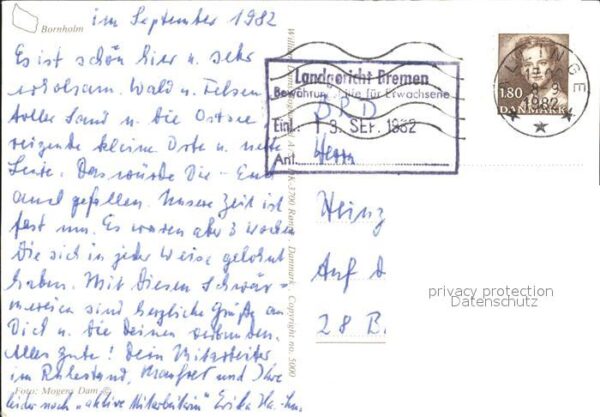 im September 1982
Bornholm
Es ist schön hier u. sehr
erholsam. Wald u. Felsen
toller Sand u. die Ostsee,
reizende kleine Orte u. nette
Leute. Das würde Dir - Euch
auch gefallen. Unsere Zeit ist
fast um. Es waren aber 3 Wochen
die sich in jeder Weise gelohnt
haben. Mit diesen Schwär-
mereien sind herzliche Grüße an
Dich u. die Deinen verbunden.
Alles Gute! Dein Mitarbeiter
im Ruhestand, Manfred und Ihre
leider noch "aktive Mitarbeiterin" Erika
Foto: Mogens Dam
Copyright no. 5000
Landgericht Bremen
Bewährungshilfe für Erwachsene
BRD
Eint.: 13. SEP. 1982
Anl.
Herrn
Heinz
Auf d
28 B.
1.80
DANMARK
8.-9.
1982
privacy protection
Datenschutz